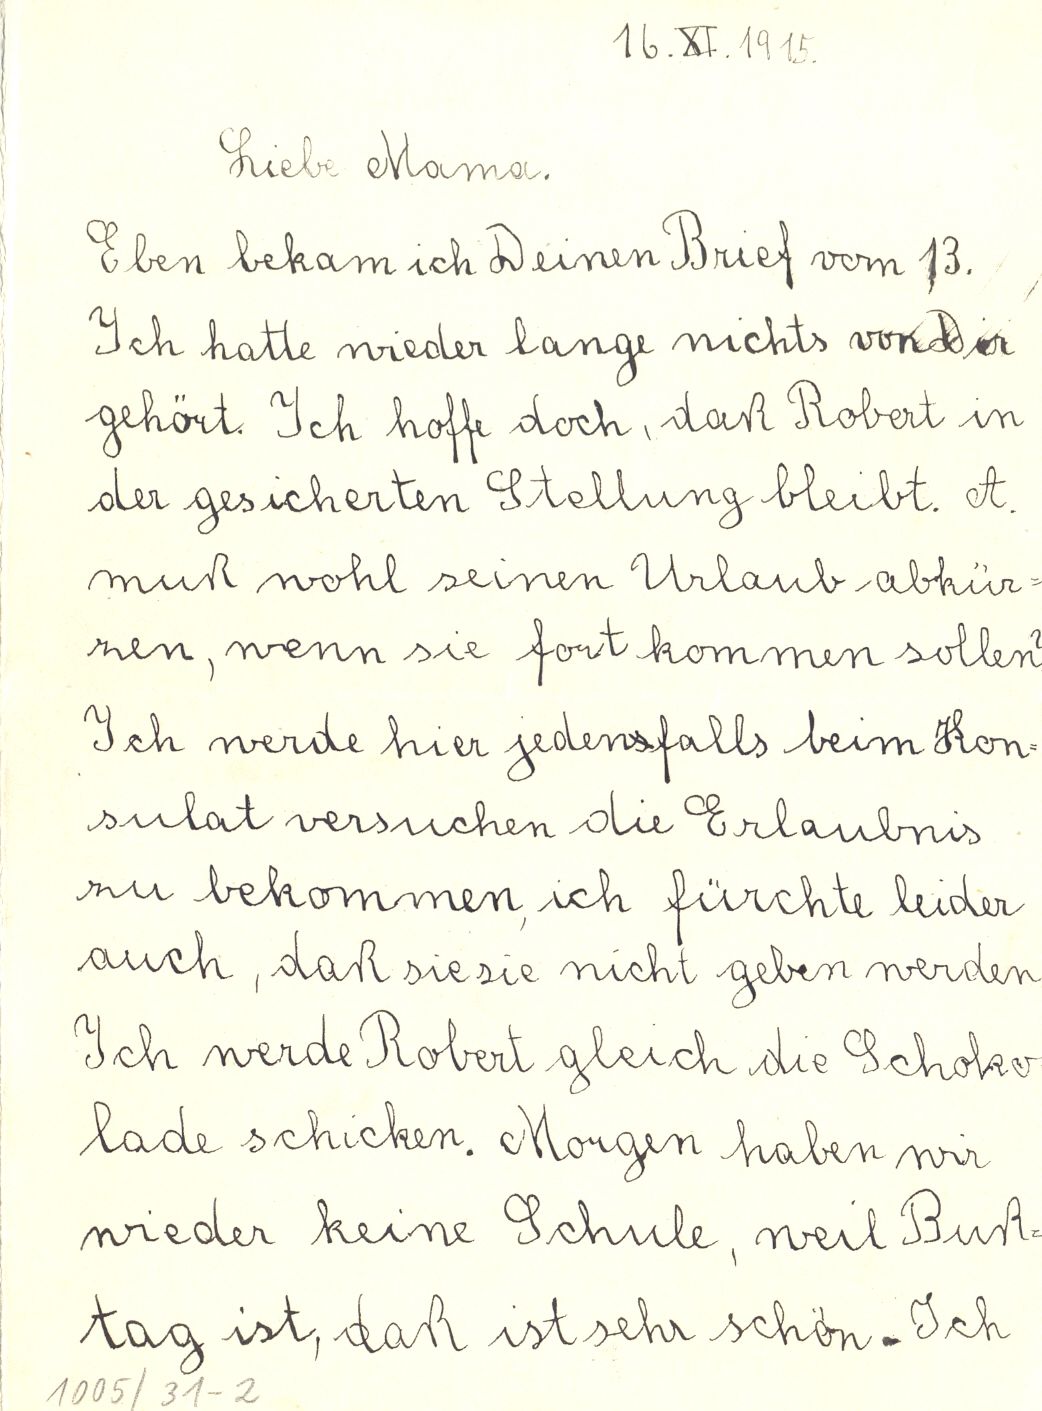 16. XI. 1915.
Liebe Mama.
Eben bekam ich Deinen Brief vom 13.
Ich hatte wieder lange nichts von Dir
gehört. Ich hoffe doch, daß Robert in
der gesicherten Stellung bleibt. A.
muß wohl seinen Urlaub abkür=
zen, wenn sie fort kommen sollen?
Ich werde hier jedensfalls beim Kon=
sulat versuchen die Erlaubnis
zu bekommen, ich fürchte leider
auch, daß sie sie nicht geben werden
Ich werde Robert gleich die Schoko
lade schicken. Morgen haben wir
wieder keine Schule, weil Buß=
tag ist, daß ist sehr schön. Ich
1005/31-2